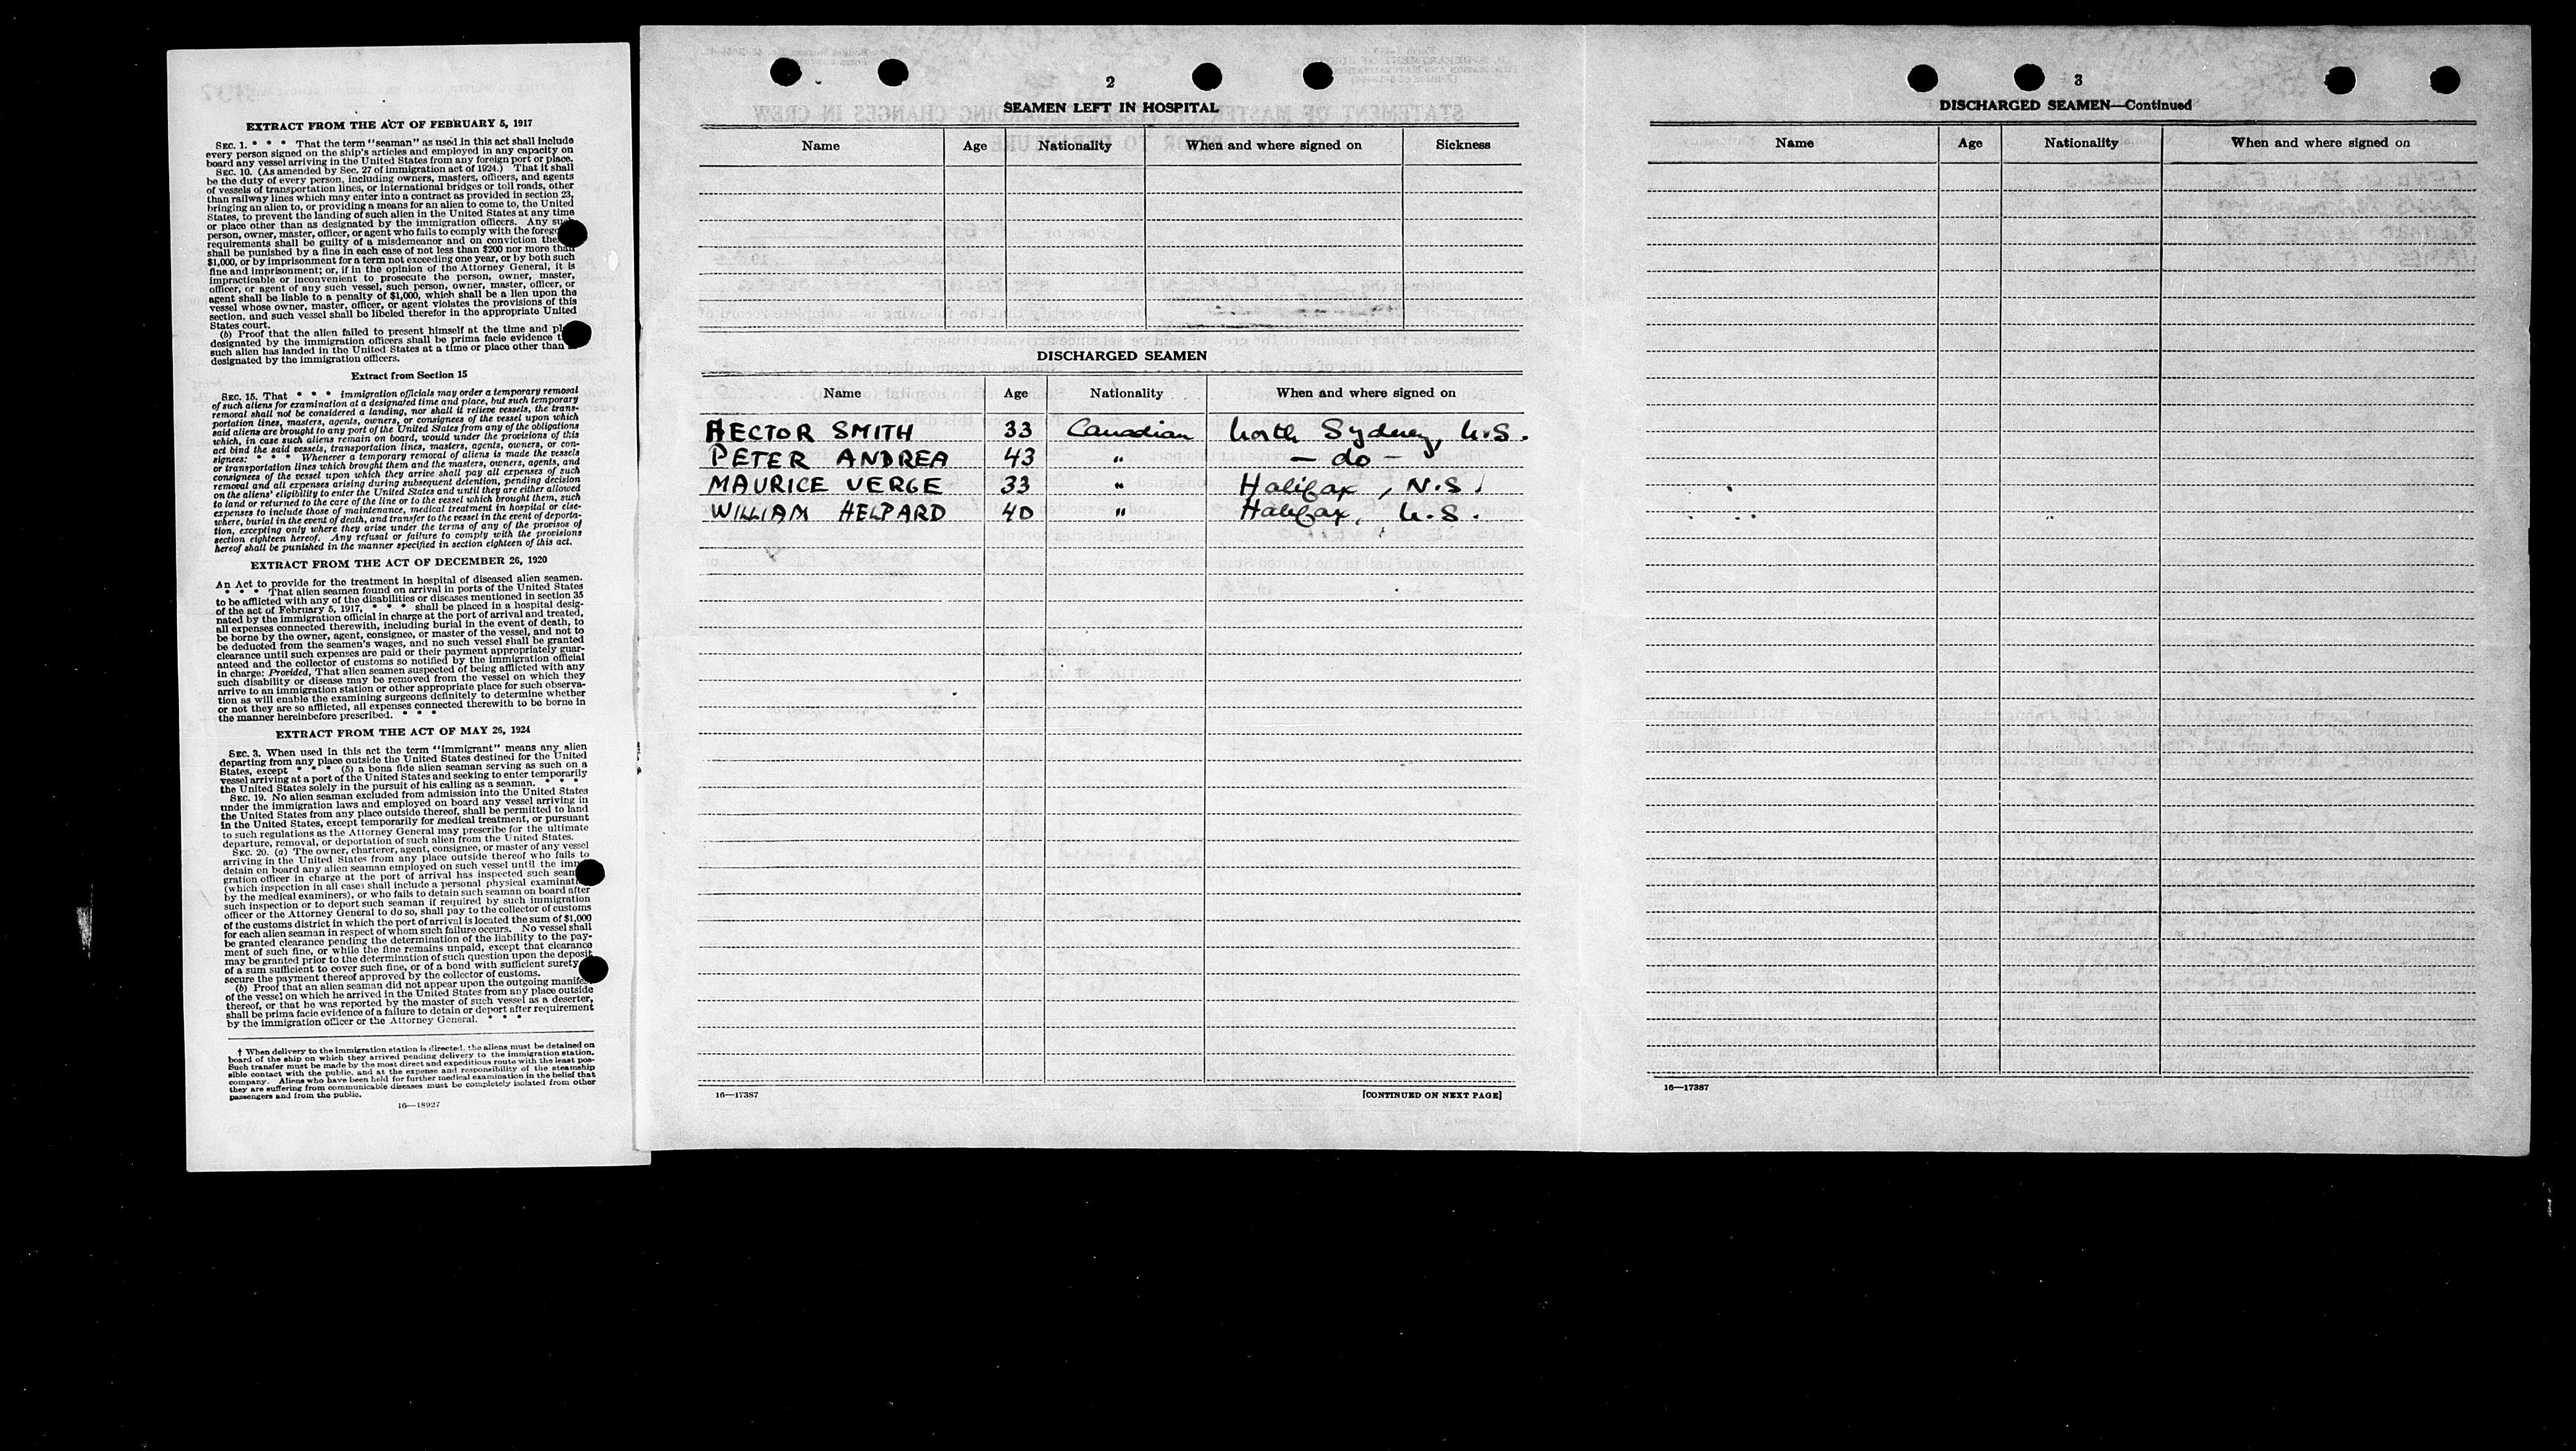 EXTRACT FROM THE ACT OF FEBRUARY 5, 1917
SEC. 1. * * * That the term "seaman" as used in this act shall include
every person signed on the ship's articles and employed in any capacity on
board any vessel arriving in the United States from any foreign port or place.
SEC. 10. (As amended by Sec. 27 of immigration act of 1924.) That it shall
be the duty of every person, including owners, masters, officers, and agents
of vessels of transportation lines, or international bridges or toll roads, other
than railway lines which may enter into a contract as provided in section 23,
bringing an alien to, or providing a means for an alien to come to, the United
States, to prevent the landing of such alien in the United States at any time
or place other than as designated by the immigration officers. Any such
person, owner, master, officer, or agent who fails to comply with the forego
requirements shall be guilty of a misdemeanor and on conviction the
shall be punished by a fine in each case of not less than $200 nor more than
$1,000, or by imprisonment for a term not exceeding one year, or by both such
fine and imprisonment; or, if in the opinion of the Attorney General, it is
impracticable or inconvenient to prosecute the person, owner, master,
officer, or agent of any such vessel, such person, owner, master, officer, or
agent shall be liable to a penalty of $1,000, which shall be a lien upon the
vessel whose owner, master, officer, or agent violates the provisions of this
section, and such vessel shall be libeled therefor in the appropriate United
States court.
(b) Proof that the alien failed to present himself at the time and pl
designated by the immigration officers shall be prima facie evidence t
such alien has landed in the United States at a time or place other than
designated by the immigration officers.
Extract from Section 15
SEC. 15. That * * * immigration officials may order a temporary removal
of such aliens for examination at a designated time and place, but such temporary
removal shall not be considered a landing, nor shall it relieve vessels, the trans-
portation lines, masters, agents, owners, or consignees of the vessel upon which
said aliens are brought to any port of the United States from any of the obligations
which, in case such aliens remain on board, would under the provisions of this
act bind the said vessels, transportation lines, masters, agents, owners, or con-
signees: * * * Whenever a temporary removal of aliens is made the vessels
or transportation lines which brought them and the masters, owners, agents, and
consignees of the vessel upon which they arrive shall pay all expenses of such
removal and all expenses arising during subsequent detention, pending decision
on the aliens' eligibility to enter the United States and until they are either allowed
to land or returned to the care of the line or to the vessel which brought them, such
expenses to include those of maintenance, medical treatment in hospital or else-
where, burial in the event of death, and transfer to the vessel in the event of deporta-
tion, excepting only where they arise under the terms of any of the provisos of
section eighteen hereof. Any refusal or failure to comply with the provisions
hereof shall be punished in the manner specified in section eighteen of this act.
EXTRACT FROM THE ACT OF DECEMBER 26, 1920
An Act to provide for the treatment in hospital of diseased alien seamen.
* * * That alien seamen found on arrival in ports of the United States
to be afflicted with any of the disabilities or diseases mentioned in section 35
of the act of February 5, 1917, * * * shall be placed in a hospital desig-
nated by the immigration official in charge at the port of arrival and treated,
all expenses connected therewith, including burial in the event of death, to
be borne by the owner, agent, consignee, or master of the vessel, and not to
be deducted from the seamen's wages, and no such vessel shall be granted
clearance until such expenses are paid or their payment appropriately guar-
anteed and the collector of customs so notified by the immigration official
in charge: Provided, That alien seamen suspected of being afflicted with any
such disability or disease may be removed from the vessel on which they
arrive to an immigration station or other appropriate place for such observa-
tion as will enable the examining surgeons definitely to determine whether
or not they are so afflicted, all expenses connected therewith to be borne in
the manner hereinbefore prescribed. * * *
EXTRACT FROM THE ACT OF MAY 26, 1924
SEC. 3. When used in this act the term "immigrant" means any alien
departing from any place outside the United States destined for the United
States, except * * * (5) a bona fide alien seaman serving as such on a
vessel arriving at a port of the United States and seeking to enter temporarily
the United States solely in the pursuit of his calling as a seaman. * * *
SEC. 19. No alien seaman excluded from admission into the United States
under the immigration laws and employed on board any vessel arriving in
the United States from any place outside thereof, shall be permitted to land
in the United States, except temporarily for medical treatment, or pursuant
to such regulations as the Attorney General may prescribe for the ultimate
departure, removal, or deportation of such alien from the United States.
SEC. 20. (a) The owner, charterer, agent, consignee, or master of any vessel
arriving in the United States from any place outside thereof who fails to
detain on board any alien seaman employed on such vessel until the imm
gration officer in charge at the port of arrival has inspected such seam
(which inspection in all cases shall include a personal physical examinati
by the medical examiners), or who fails to detain such seaman on board after
such inspection or to deport such seaman if required by such immigration
officer or the Attorney General to do so, shall pay to the collector of customs
of the customs district in which the port of arrival is located the sum of $1,000
for each alien seaman in respect of whom such failure occurs. No vessel shall
be granted clearance pending the determination of the liability to the pay-
ment of such fine, or while the fine remains unpaid, except that clearance
may be granted prior to the determination of such question upon the deposit
of a sum sufficient to cover such fine, or of a bond with sufficient surety
secure the payment thereof approved by the collector of customs.
(b) Proof that an alien seaman did not appear upon the outgoing manifes
of the vessel on which he arrived in the United States from any place outside
thereof, or that he was reported by the master of such vessel as a deserter,
shall be prima facie evidence of a failure to detain or deport after requirement
by the immigration officer or the Attorney General. * * *
† When delivery to the immigration station is directed, the aliens must be detained on
board of the ship on which they arrived pending delivery to the immigration station.
Such transfer must be made by the most direct and expeditious route with the least pos-
sible contact with the public, and at the expense and responsibility of the steamship
company. Aliens who have been held for further medical examination in the belief that
they are suffering from communicable diseases must be completely isolated from other
passengers and from the public.
16—18927
2
SEAMEN LEFT IN HOSPITAL
Name Age Nationality When and where signed on Sickness
DISCHARGED SEAMEN
Name Age Nationality When and where signed on
HECTOR SMITH 33 Canadian North Sydney, N.S.
PETER ANDREA 43 " — do —
MAURICE VERGE 33 " Halifax, N.S.
WILLIAM HELPARD 40 " Halifax, N.S.
16—17387 [CONTINUED ON NEXT PAGE]
3
DISCHARGED SEAMEN—Continued
Name Age Nationality When and where signed on
16—17387